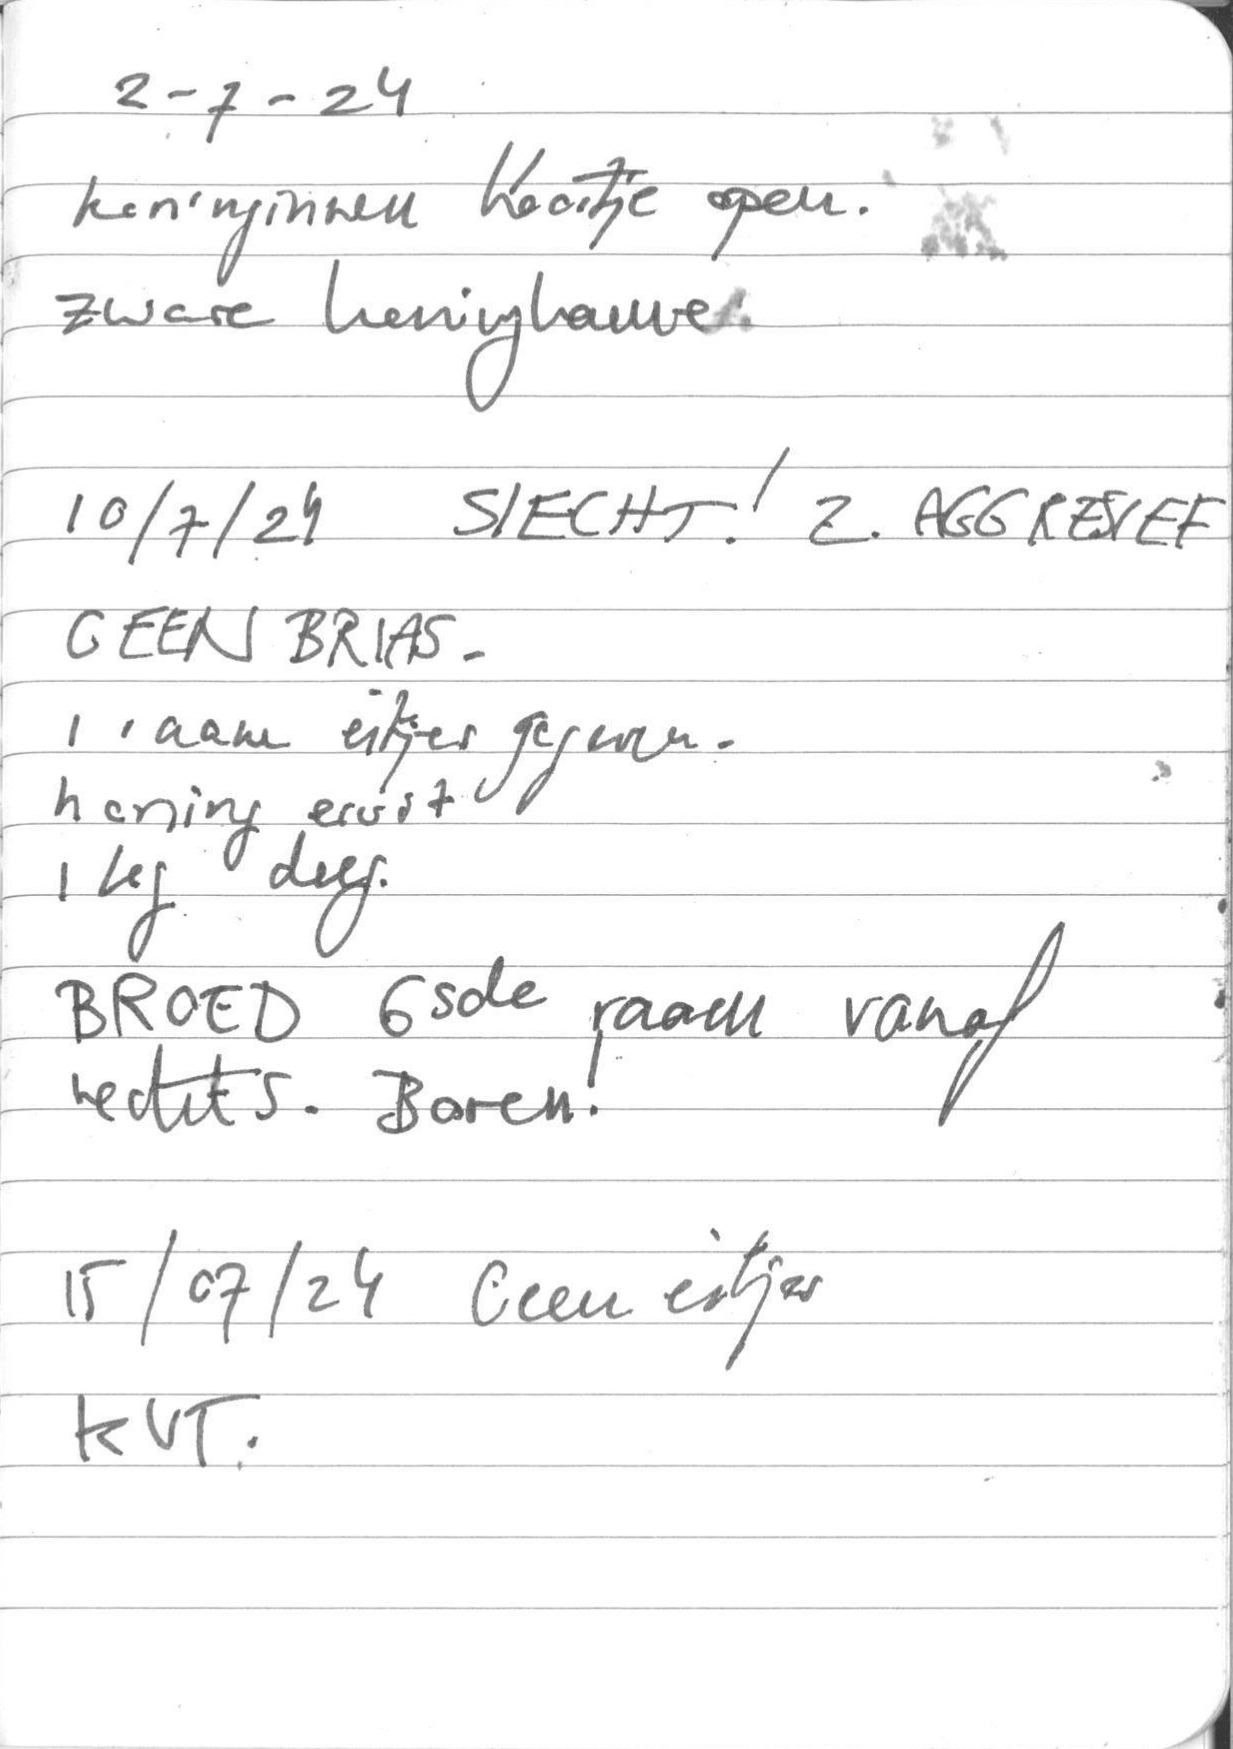 2-7-24
koninginnen kooitje open.
zware honinghauwe.
10/7/24 SlECHT! Z. AGGRESIEF
GEEN BRIAS.
1 raam eitjes gegeven.
honing eruit
1 kg deeg.
BROED 6sde raam vanaf
rechts. Boren!
15/07/24 Geen eitjes
KVT.